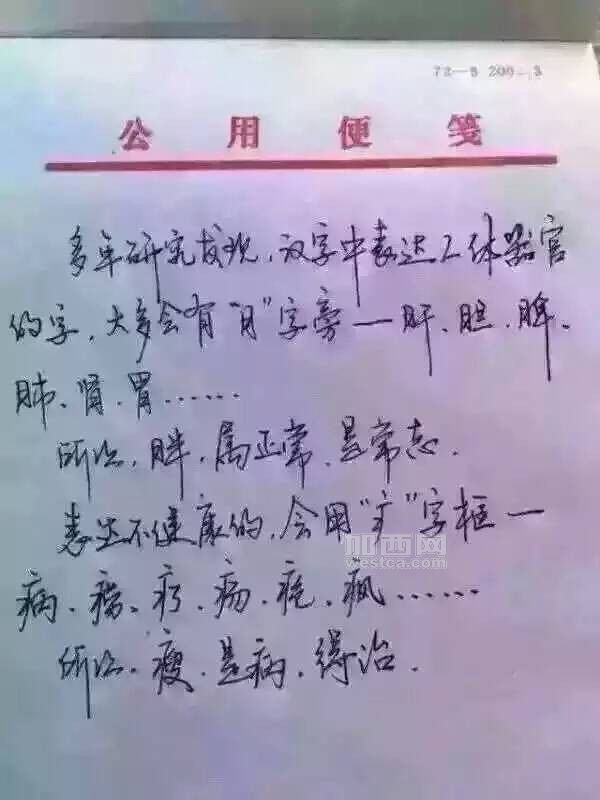 公用便笺
多年研究发现，汉字中表达人体器官
的字，大多会有“月”字旁——肝、胆、脾、
肺、肾、胃……
所以，胖，属正常，是常态．
表达不健康的，会用“疒”字框——
病、疮、疗、疡、疙、疯……
所以，瘦，是病，得治．
加西网
westca.com